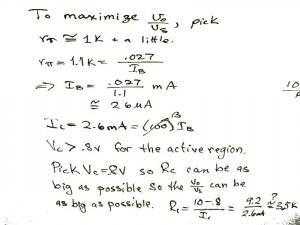 To maximize Vo/Vs, pick
rπ ≅ 1K + a little.
rπ = 1.1K = .027/IB
⇒ IB = .027/1.1 mA
≅ 26 µA
Ic = 2.6mA = (100)β IB
Vc > .8V for the active region.
Pick Vc = .8V so Rc can be as
big as possible so the Vo/Vs can be
as big as possible. Rc = 10-.8/Ic = 9.2/2.6mA ≅ 3.5K
10